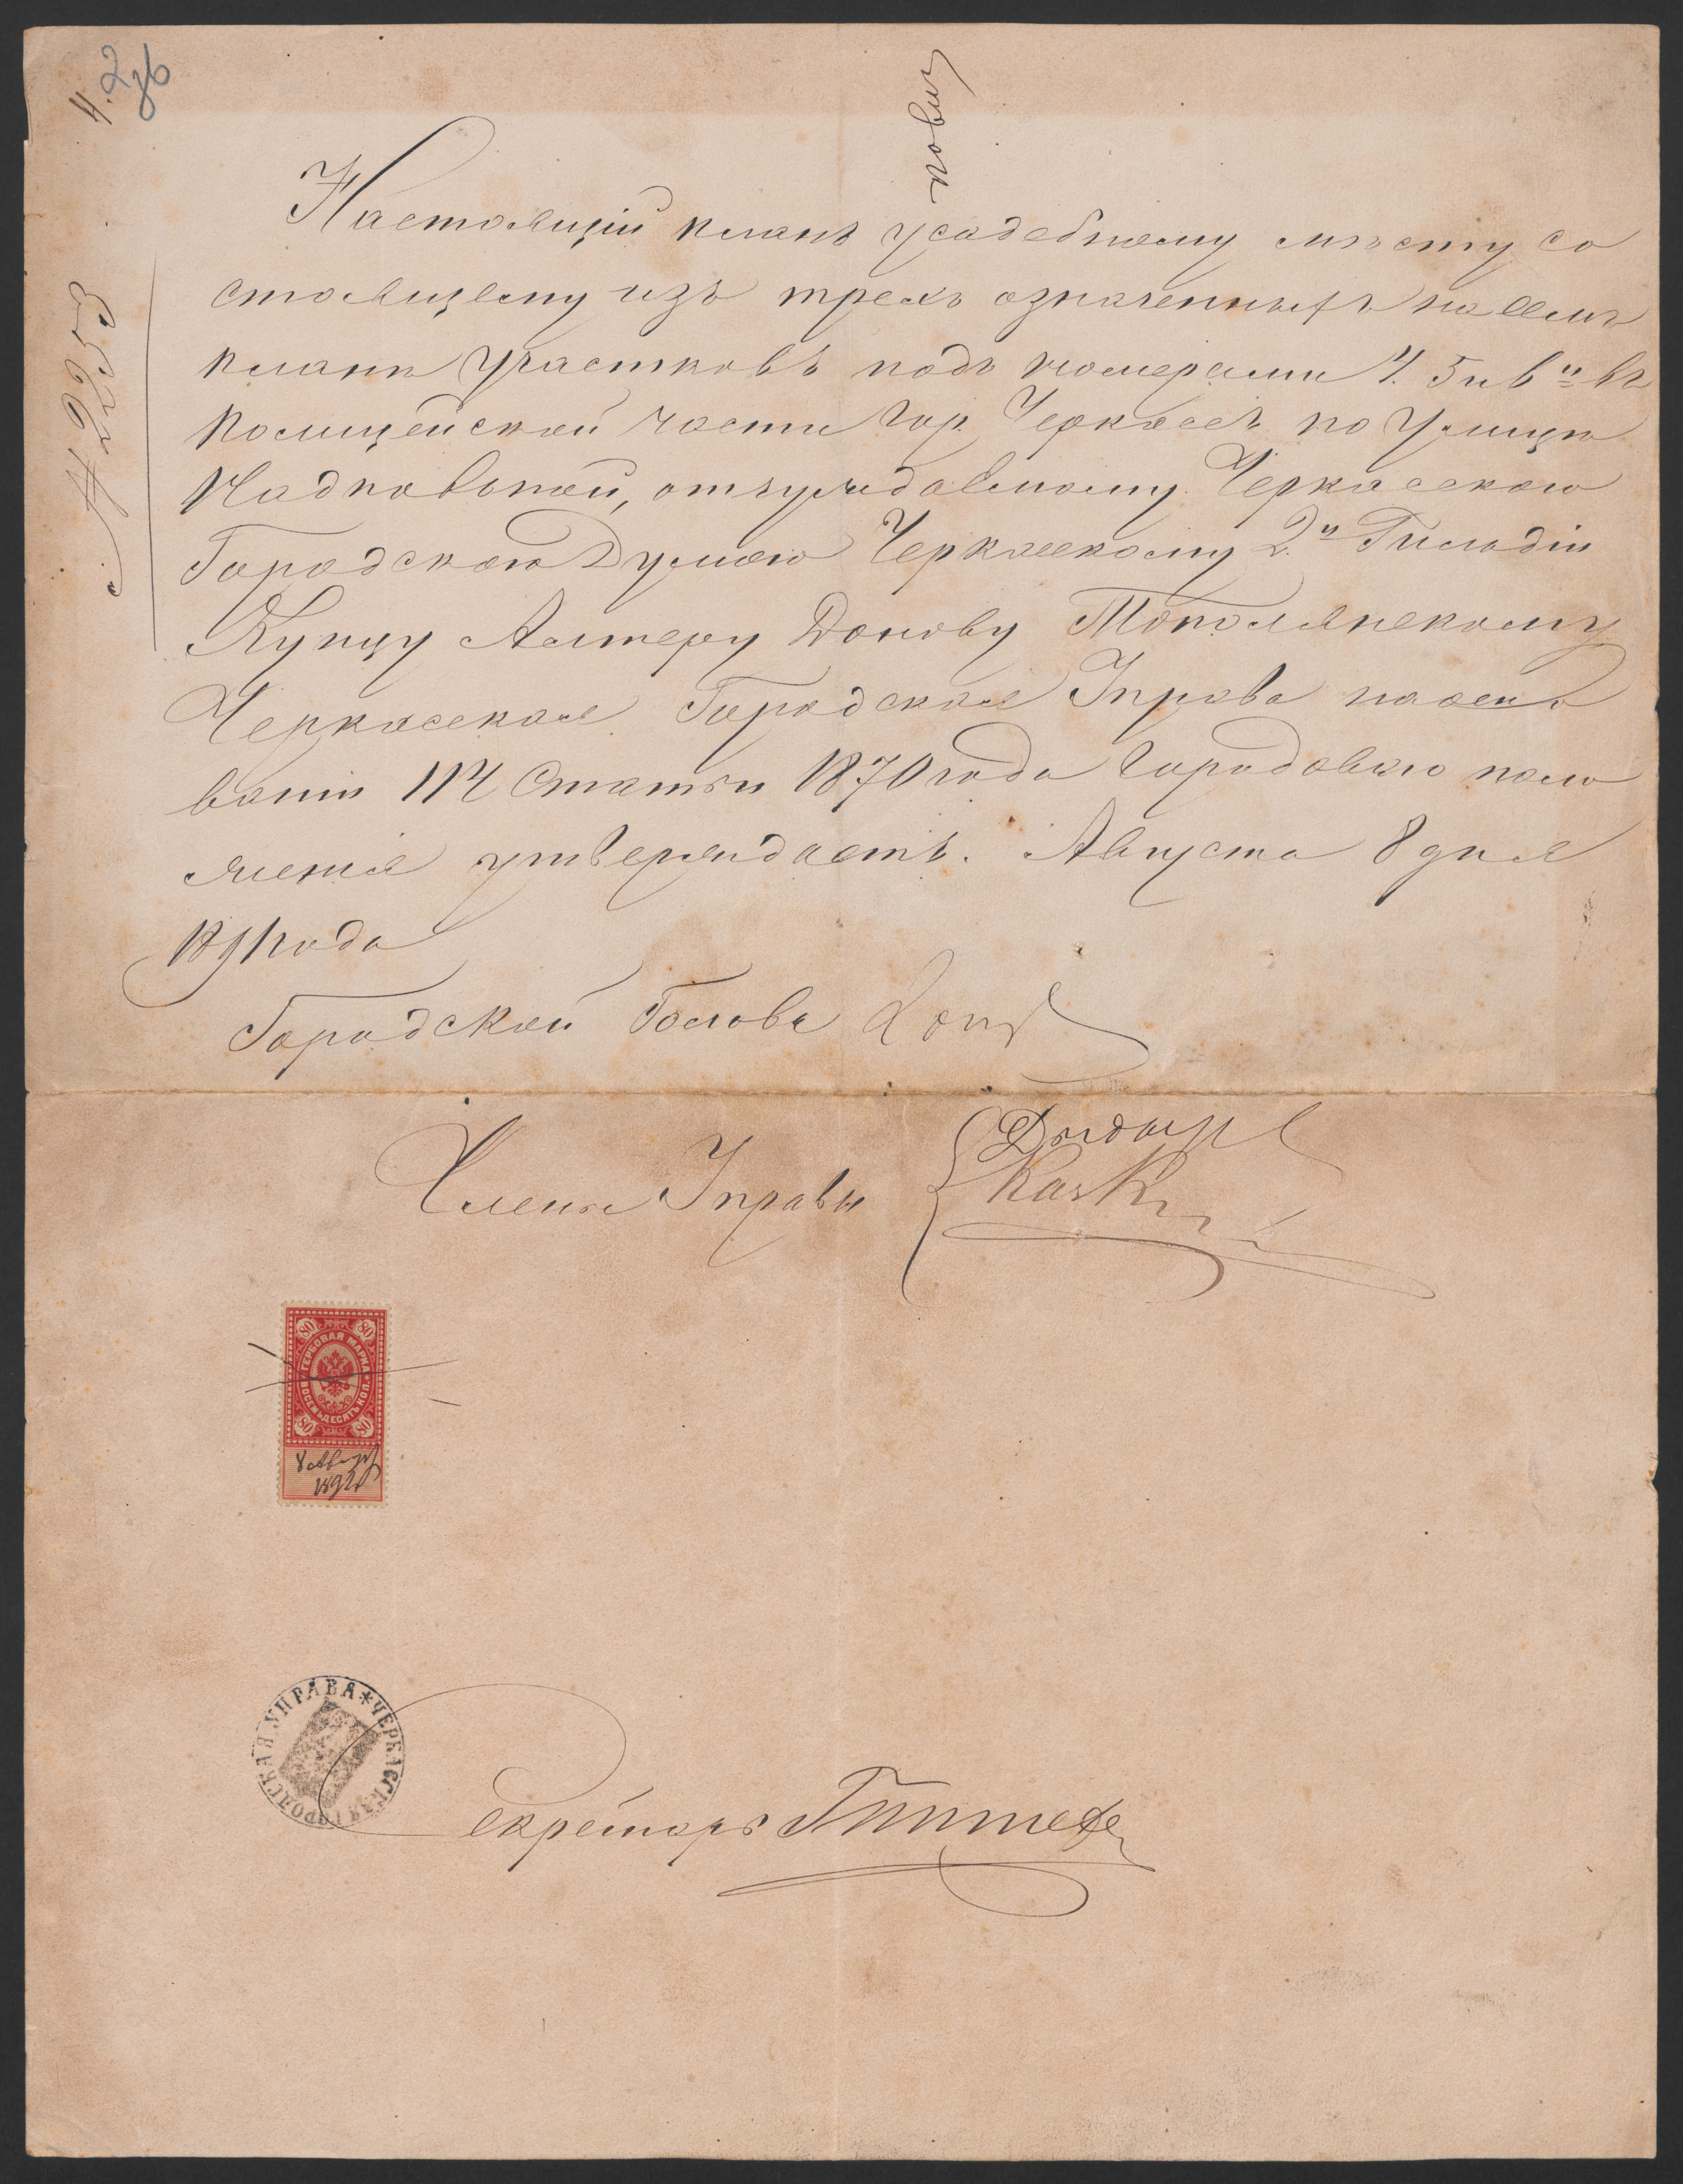 4.2
36
№ 2253
Настоящій планъ усадебному мѣсту со
стоящему изъ трехъ означенныхъ на семъ
планѣ участковъ подъ номерами 4. 5 и 6й въ
полицейской части гор. Черкассъ по Улицѣ
Надпольной, отчужденному Черкасскою
Городскою Думою Черкасскому 2й Гильдіи
Купцу Алтеру Донову Тополянскому
Черкасская Городская Управа на осно
ваніи 114 Статьи 1870 года Городоваго поло
женія утверждаетъ. Августа 8 дня
1891 года
Городской Голова
Члены Управы
80 80
ГЕРБОВАЯ МАРКА
ВОСЕМЬДЕСЯТЪ КОП.
80 80
8 Августа
189
ЧЕРКАССКАЯ ГОРОДСКАЯ УПРАВА
Секретарь